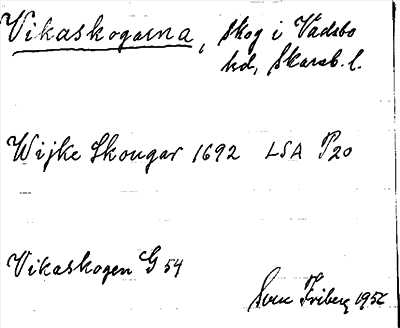 Vikaskogarna, skog i Vadsbo
hd, Skarab. l.
Wijke Skougar 1692 LSA P20
Vikaskogen G 54
Sven Friberg 1956